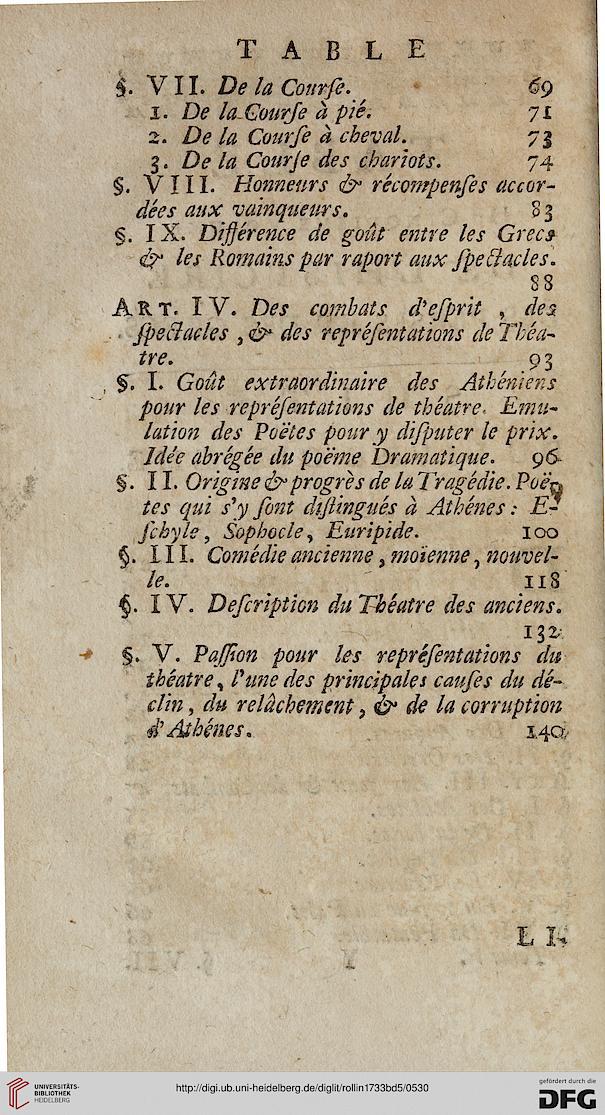 TABLE
§. VII. De la Courſe. 69
1. De la Courſe à pié. 71
2. De la Courſe à cheval. 73
3. De la Courſe des chariots. 74
§. VIII. Honneurs & récompenſes accor-
dées aux vainqueurs. 83
§. IX. Différence de goût entre les Grecs
& les Romains par raport aux ſpectacles.
88
ART. IV. Des combats d'eſprit, des
ſpectacles, & des repréſentations de Théa-
tre. 93
§. I. Goût extraordinaire des Athéniens
pour les repréſentations de théatre. Emu-
lation des Poëtes pour y diſputer le prix.
Idée abrégée du poëme Dramatique. 96
§. II. Origine & progrès de la Tragédie. Poë-
tes qui s'y ſont diſtingués à Athénes: E-
ſchyle, Sophocle, Euripide. 100
§. III. Comédie ancienne, moienne, nouvel-
le. 118
§. IV. Deſcription du Théatre des anciens.
132
§. V. Paſſion pour les repréſentations du
théatre, l'une des principales cauſes du dé-
clin, du relâchement, & de la corruption
d'Athénes. 140
LI-
UNIVERSITÄTS-
BIBLIOTHEK
HEIDELBERG
http://digi.ub.uni-heidelberg.de/diglit/rollin1733bd5/0530
gefördert durch die
DFG